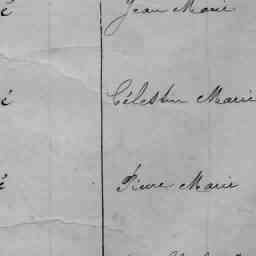 é Jean Marie
é Célestin Marie
é Pierre Marie